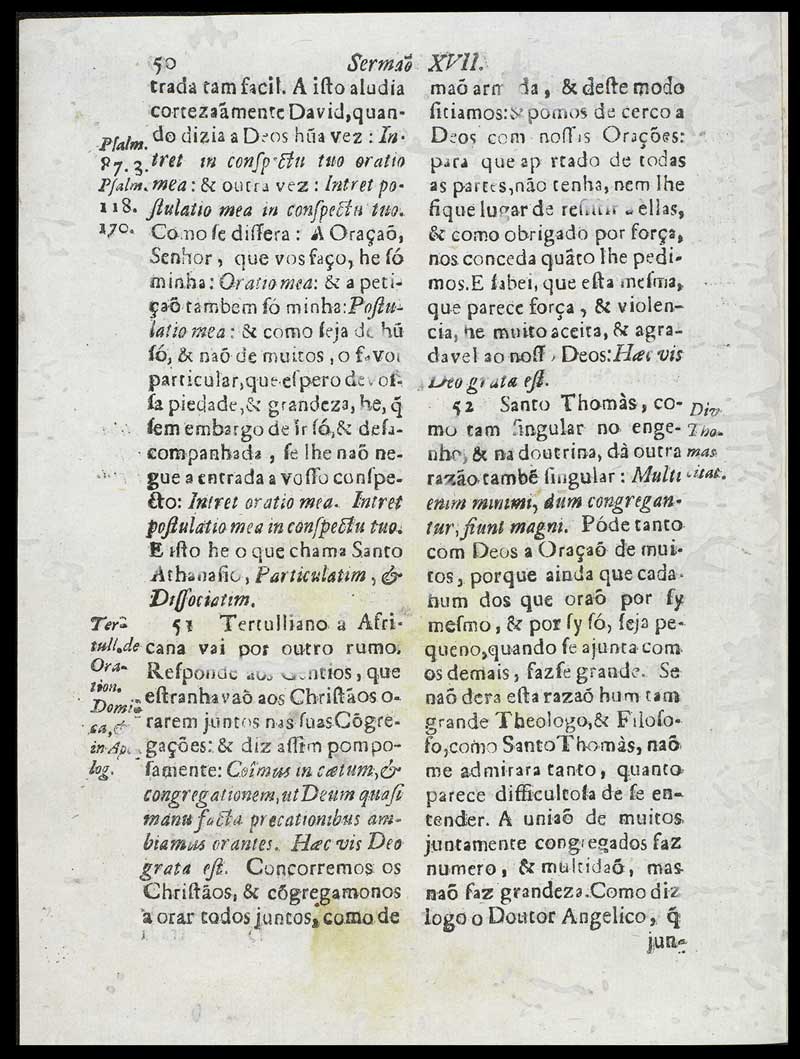 50
Sermaõ XVII.
trada tam facil. A iſto aludia
cortezaãmente David,quan-
do dizia a Deos hũa vez : In-
tret in conſpectu tuo oratio
mea : & outra vez : Intret po-
ſtulatio mea in conſpectu tuo.
Como ſe diſſera : A Oraçaõ,
Senhor, que vos faço, he ſó
minha : Oratio mea: & a peti-
çaõ tambem ſó minha:Poſtu-
latio mea : & como ſeja de hũ
ſó, & naõ de muitos, o favor
particular,que eſpero de voſ-
ſa piedade,& grandeza, he, q̃
ſem embargo de ir ſó,& deſa-
companhada, ſe lhe naõ ne-
gue a entrada a voſſo conſpe-
cto: Intret oratio mea. Intret
poſtulatio mea in conſpectu tuo.
E iſto he o que chama Santo
Athanaſio, Particulatim, &
Diſſociatim.
51 Tertulliano a Afri-
cana vai por outro rumo.
Reſponde aos Gentios, que
eſtranhavaõ aos Chriſtãos o-
rarem juntos nas ſuas Cõgre-
gações: & diz aſſim pompo-
ſamente: Coîmus in cætum, &
congregationem, ut Deum quaſi
manu facta precationibus am-
biamus orantes. Hæc vis Deo
grata eſt. Concorremos os
Chriſtãos, & cõgregamonos
a orar todos juntos, como de
Pſalm.
87. 3.
Pſalm.
118.
170.
Ter̃
tull.de
Ora-
tion.
Domi
ca, &
in Ap
log.
maõ da, & deſte modo
ſitiamos: & pomos de cerco a
Deos com noſſas Orações:
para que apartado de todas
as partes,não tenha, nem lhe
fique lugar de reſiſtir a ellas,
& como obrigado por força,
nos conceda quãto lhe pedi-
mos.E ſabei, que eſta meſma,
que parece força, & violen-
cia, he muito aceita, & agra-
davel ao noſſo Deos:Hæc vis
Deo grata eſt.
52 Santo Thomàs, co-
mo tam ſingular no enge-
nho, & na doutrina, dà outra
razão tambẽ ſingular : Multi
enim minimi, dum congregan-
tur, fiunt magni. Póde tanto
com Deos a Oraçaõ de mui-
tos, porque ainda que cada
hum dos que oraõ por ſy
meſmo, & por ſy ſó, ſeja pe-
queno,quando ſe ajunta com
os demais, fazſe grande. Se
naõ dera eſta razaõ hum tam
grande Theologo,& Filoſo-
fo,como Santo Thomàs, naõ
me admirara tanto, quanto
parece difficultoſa de ſe en-
tender. A uniaõ de muitos
juntamente congregados faz
numero, & multidaõ, mas
naõ faz grandeza.Como diz
logo o Doutor Angelico, q̃
jun-
Div
Tho-
mas
citat.